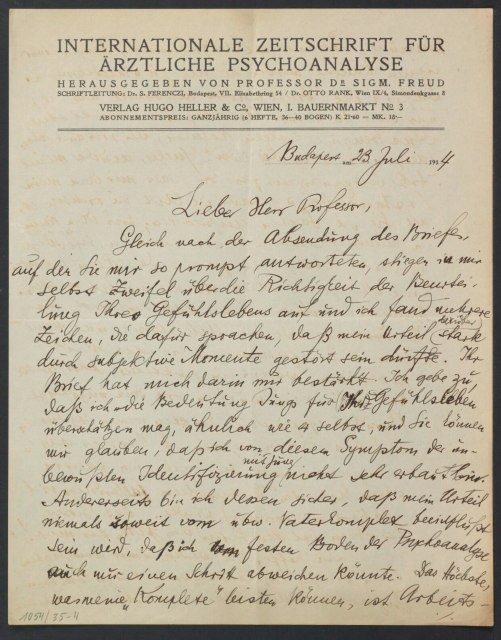 INTERNATIONALE ZEITSCHRIFT FÜR
ÄRZTLICHE PSYCHOANALYSE
HERAUSGEGEBEN VON PROFESSOR DR SIGM. FREUD
SCHRIFTLEITUNG: Dr. S. FERENCZI, Budapest, VII. Elisabethring 54 / Dr. OTTO RANK, Wien IX/4, Simondenkgasse 8
VERLAG HUGO HELLER & Co, WIEN, I. BAUERNMARKT No 3
ABONNEMENTSPREIS: GANZJÄHRIG (6 HEFTE, 36—40 BOGEN) K 21·60 = MK. 18·—
Budapest am 23. Juli 1914
Lieber Herr Professor,
Gleich nach der Absendung des Briefes,
auf den Sie mir so prompt antworteten, stiegen in mir
selbst Zweifel über die Richtigkeit der Beurtei-
lung Ihres Gefühlslebens auf und ich fand mehrere
Zeichen, die dafür sprachen, daß mein Urteil darüber stark
durch subjektive Momente gestört sein dürfte. Ihr
Brief hat mich darin nur bestärkt. Ich gebe zu,
daß ich die Bedeutung Jungs für Ihr Gefühlsleben
überschätzen mag, ähnlich wie er selbst, und Sie können
mir glauben, daß ich von diesem Symptom der un-
bewußten Identifizierung mit Jung nicht sehr erbaut bin.
Andererseits bin ich dessen sicher, daß mein Urteil
niemals soweit vom ubw. Vaterkomplex beeinflußt
sein wird, daß ich vom festen Boden der Psychoanalyse
auch nur einen Schritt abweichen könnte. Das Höchste,
was meine "Komplexe" leisten können, ist Arbeits-
1054/35-4